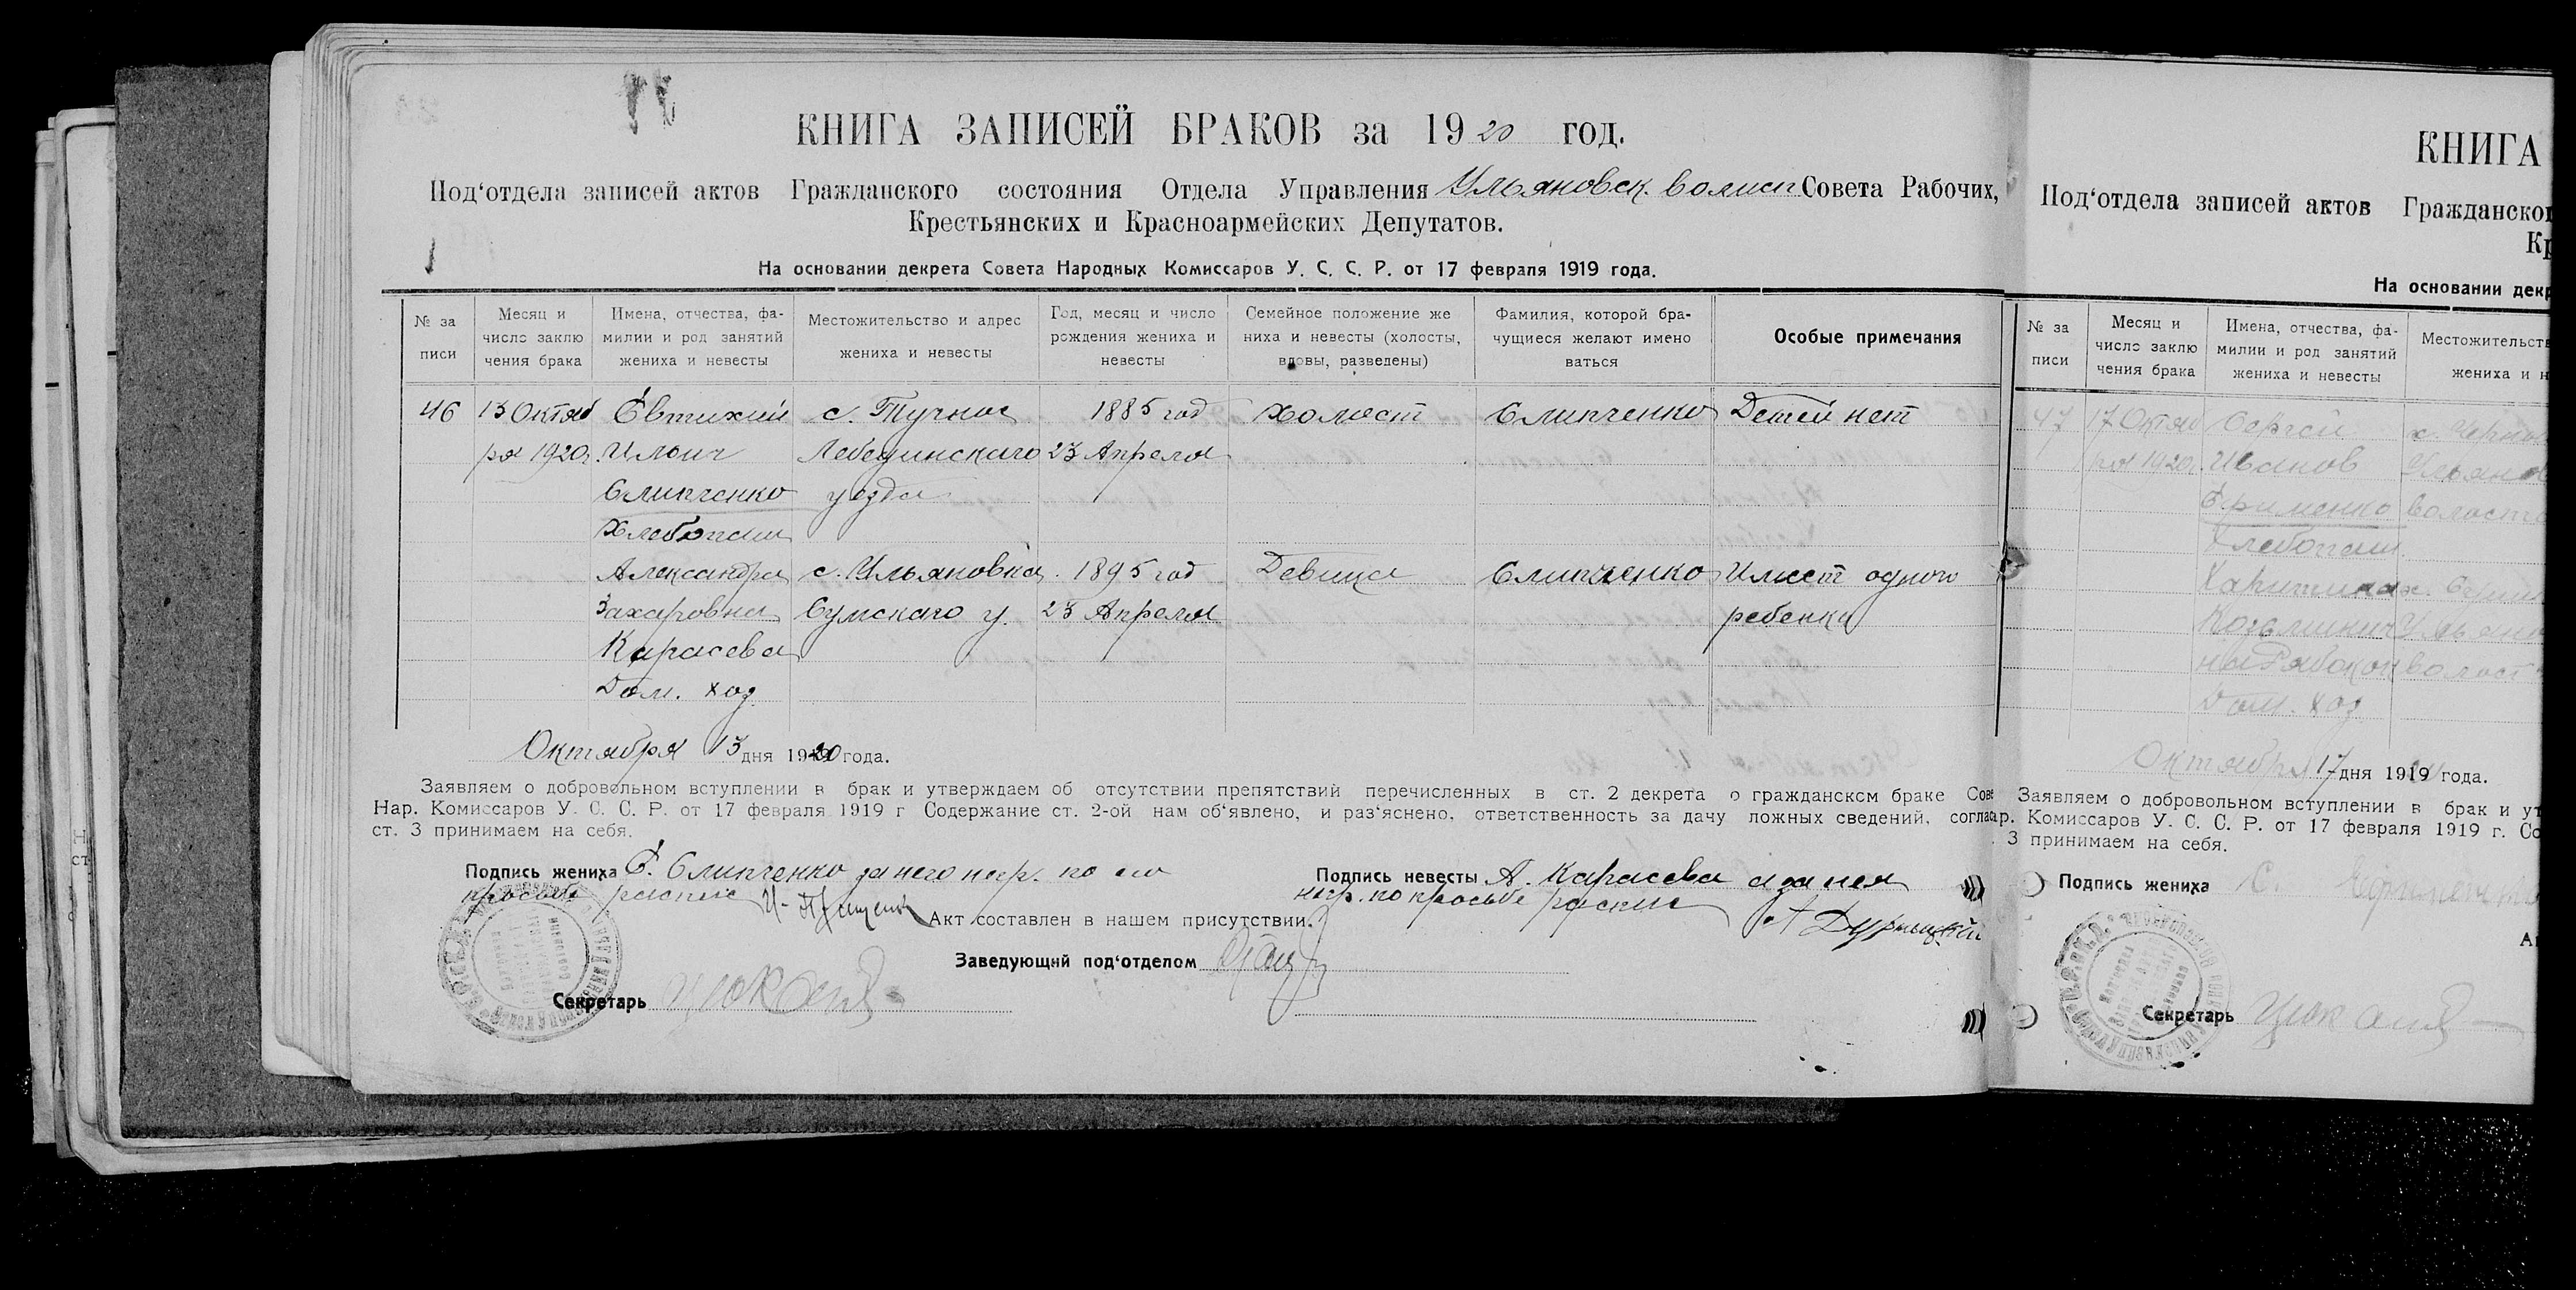 КНИГА ЗАПИСЕЙ БРАКОВ за 1920 год.
Под‘отдела записей актов Гражданского состояния Отдела Управления Ульяновск. волисп Совета Рабочих,
Крестьянских и Красноармейских Депутатов.
На основании декрета Совета Народных Комиссаров У. С. С. Р. от 17 февраля 1919 года.
№ за писи
Месяц и число заклю чения брака
Имена, отчества, фа- милии и род занятий жениха и невесты
Местожительство и адрес жениха и невесты
Год, месяц и число рождения жениха и невесты
Семейное положение же ниха и невесты (холосты, вдовы, разведены)
Фамилия, которой бра- чущиеся желают имено ваться
Особые примечания
46 13 Октяб Евтихий с. Тучное 1885 год Холост Слипченко Детей нет
ря 1920г. Ильич Лебединскаго 23 Апреля
Слипченко уезда
Хлебопаш
Александра с. Ульяновка 1895 год Девица Слипченко Имеет одного
Захаровна Сумскаго у. 23 Апреля ребенка
Карасева
Дом. хоз
Октября 13 дня 1920 года.
Заявляем о добровольном вступлении в брак и утверждаем об отсутствии препятствий перечисленных в ст. 2 декрета о гражданском браке Сове
Нар. Комиссаров У. С. С. Р. от 17 февраля 1919 г Содержание ст. 2-ой нам об‘явлено, и раз‘яснено, ответственность за дачу ложных сведений, соглас
ст. 3 принимаем на себя.
Подпись жениха Е. Слипченко за него негр. по его
просьбе роспис
Подпись невесты А. Карасева а за нея
негр. по просьбе роспис
Акт составлен в нашем присутствии.
Заведующий под‘отделом
Секретарь
КНИГА
Под‘отдела записей актов Гражданског
Кр
На основании декр
№ за писи
Месяц и число заклю чения брака
Имена, отчества, фа- милии и род занятий жениха и невесты
Местожительств жениха и н
47 17 Октяб Сергей
ря 1920г. Иванов Ульянов
Ефименко волости
Хлебопаш.
Дом. хоз
Октября 17 дня 1919 года.
Заявляем о добровольном вступлении в брак и ут
р. Комиссаров У. С. С. Р. от 17 февраля 1919 г. Со
3 принимаем на себя.
Подпись жениха С.
А
Секретарь